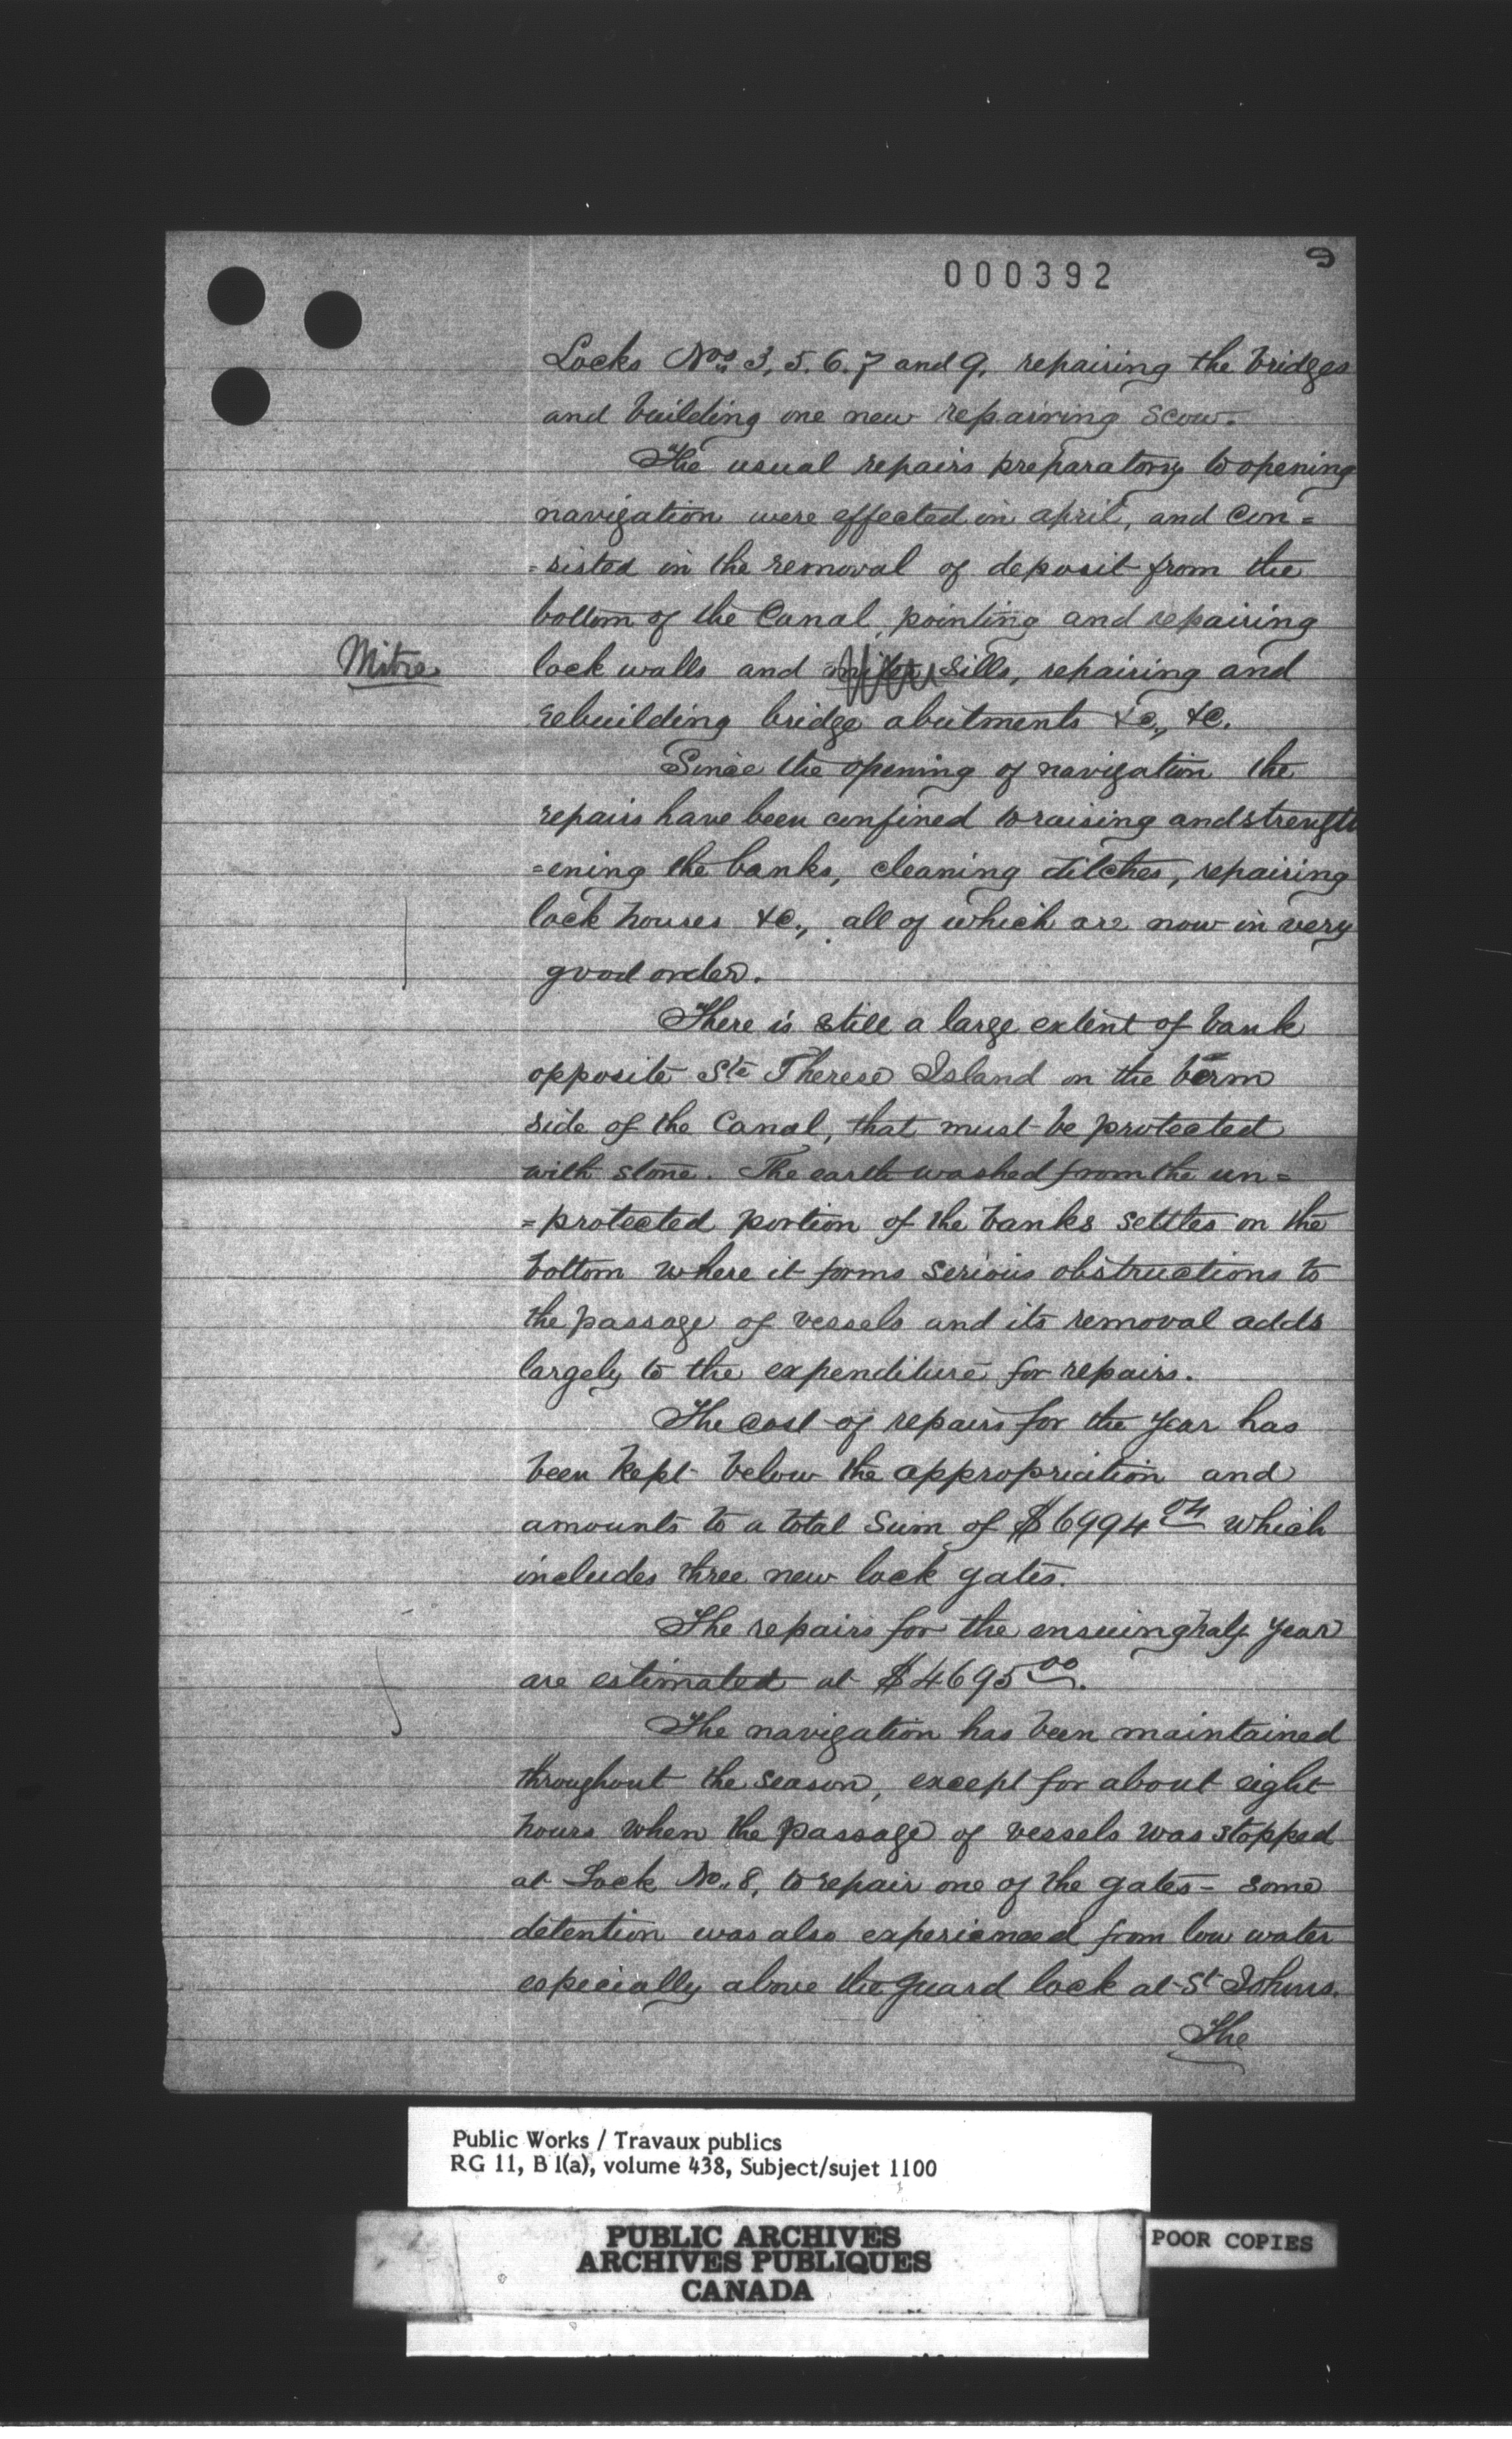 9
000392
Locks Nos 3, 5. 6. 7 and 9, repairing the bridges
and building one new repairing scow.
The usual repairs preparatory to opening
navigation were effected in april, and con=
=sisted in the removal of deposit from the
bottom of the Canal, pointing and repairing
Mitre
lock walls and sills, repairing and
rebuilding bridge abutments &c., &c.
Since the opening of navigation the
repairs have been confined to raising and strength
=ening the banks, cleaning ditches, repairing
lock houses &c., all of which are now in very
good order.
There is still a large extent of bank
opposite Ste Therese Island on the berm
side of the Canal, that must be protected
with stone. The earth washed from the un=
=protected portion of the banks settles on the
bottom where it forms serious obstructions to
the passage of vessels and its removal adds
largely to the expenditure for repairs.
The cost of repairs for the year has
been kept below the appropriation and
amounts to a total sum of $6994 04 which
includes three new lock gates.
The repairs for the ensuing half year
are estimated at $4695 00.
The navigation has been maintained
throughout the season, except for about eight
hours when the passage of vessels was stopped
at Lock No. 8, to repair one of the gates - some
detention was also experienced from low water
especially above the guard lock at St Johns.
The
Public Works / Travaux publics
RG 11, B 1(a), volume 438, Subject/sujet 1100
PUBLIC ARCHIVES
ARCHIVES PUBLIQUES
CANADA
POOR COPIES